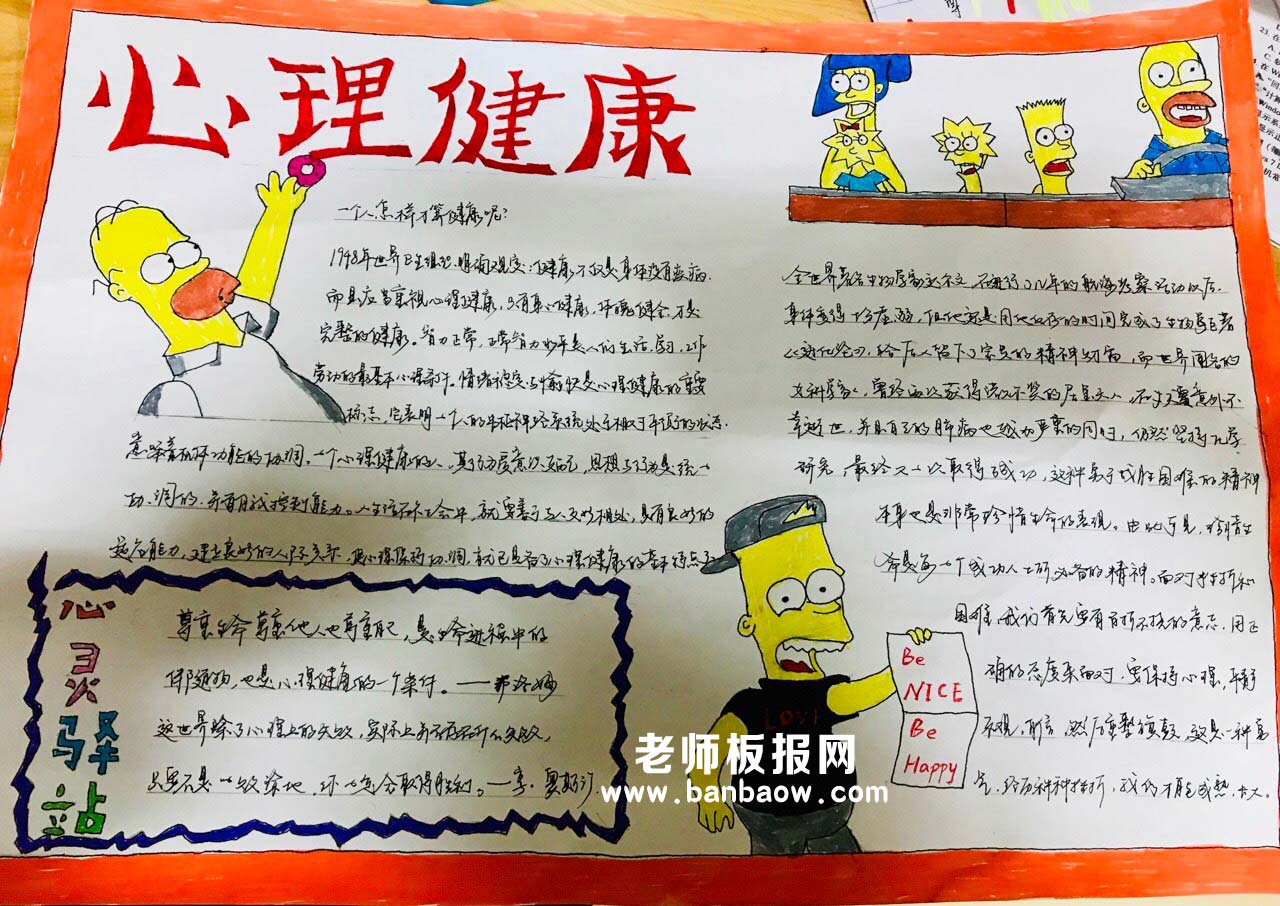 心理健康
一个人怎样才算健康呢？
1948年世界卫生组织明确规定：健康不仅是身体没有疾病，
而且应当重视心理健康，只有身心健康，体魄健全，才是
完整的健康。智力正常，正常智力水平是人们生活，学习，工作
劳动的最基本心理条件。情绪稳定与愉快是心理健康的重要
标志，它表明一个人的中枢神经系统处于相对平衡的状态
意味着机体功能的协调。一个心理健康的人，其行为受意识支配，思想与行为是统一
协调的，并有自我控制能力。人生活在社会中，就要善于与人友好相处，具有良好的
适应能力，建立良好的人际关系，
全世界著名生物学家达尔文，
身体变得十分虚弱，但他还是用他仅存的时间完成了生物学巨著
《进化论》，给后人留下了宝贵的精神财富，而世界闻名的
女科学家，曾经两次获得诺贝尔奖的居里夫人，在丈夫遭意外不
幸逝世，并且自己的肺病也极为严重的同时，仍然坚持化学
研究，最终又一次取得成功，这种勇于战胜困难的精神
本身也是非常珍惜生命的表现。由此可见，珍惜生
命是每一个成功人士所必备的精神。面对挫折和
困难，我们首先要有百折不挠的意志，用正
确的态度来面对，要保持心理，
然后重整旗鼓，这是一种勇
气，经历种种挫折，我们才能成熟，长大。
心灵驿站
尊重生命尊重他人也尊重自己，是生命进程中的
伴随物，也是心理健康的一个条件。——弗洛姆
这世界除了心理上的失败，实际上并不存在什么失败，
只要不是一败涂地，你一定会取得胜利。——亨·奥斯汀
LOVE
Be
NICE
Be
Happy
老师板报网
www.banbaow.com